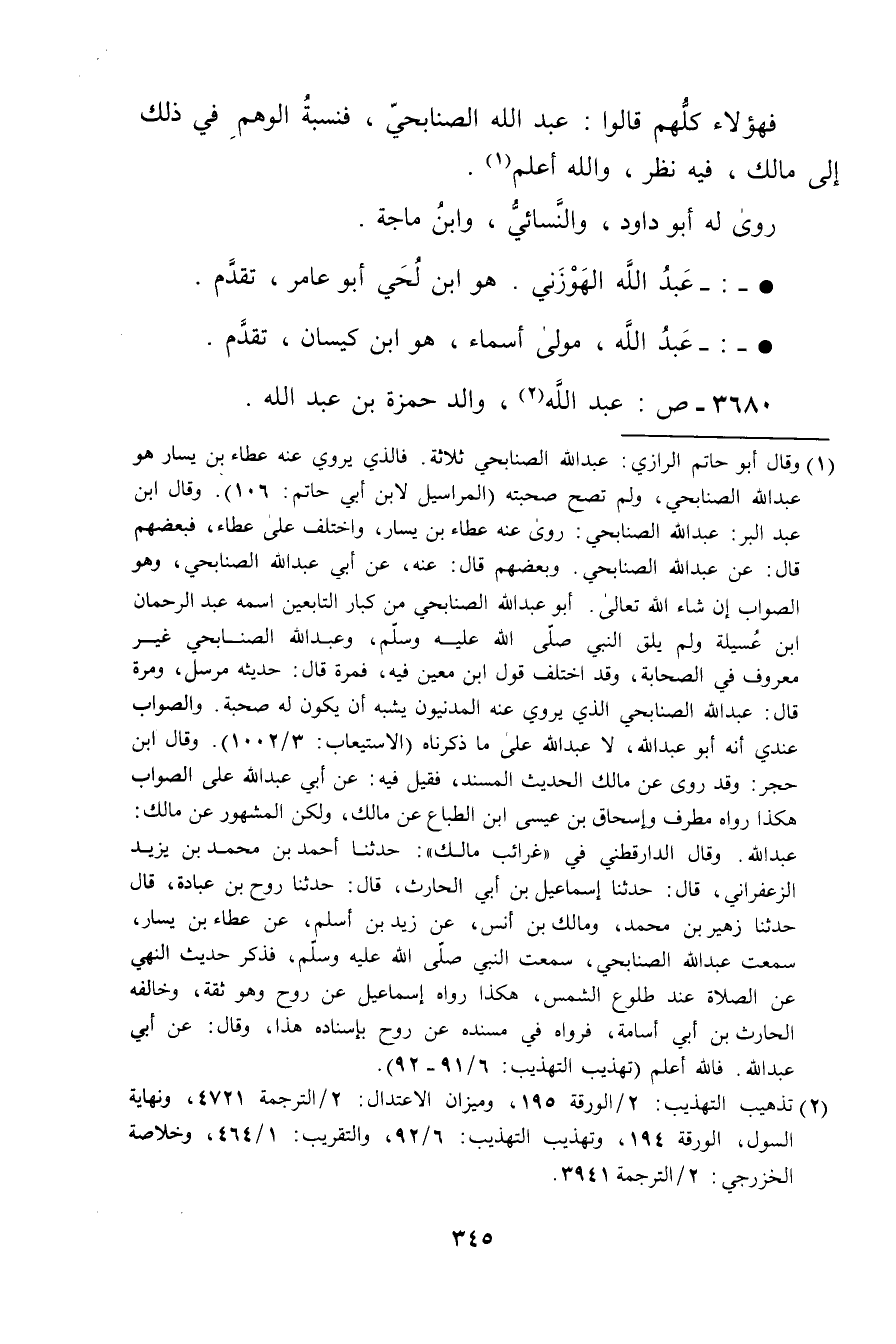 فهؤلاء كلُّهم قالوا : عبد الله الصنابحيّ ، فنسبةُ الوهم في ذلك
إلى مالك ، فيه نظر ، والله أعلم(١) .
روىٰ له أبو داود ، والنَّسائيُّ ، وابنُ ماجة .
● ـ : ـ عَبدُ اللَّه الهَوْزَني . هو ابن لُحَي أبو عامر ، تقدَّم .
● ـ : ـ عَبدُ اللَّه ، مولىٰ أسماء ، هو ابن كيسان ، تقدَّم .
٣٦٨٠ ـ ص : عبد اللَّه(٢) ، والد حمزة بن عبد الله .
(١) وقال أبو حاتم الرازي: عبدالله الصنابحي ثلاثة. فالذي يروي عنه عطاء بن يسار هو
عبدالله الصنابحي، ولم تصح صحبته (المراسيل لابن أبي حاتم: ١٠٦). وقال ابن
عبد البر: عبدالله الصنابحي: روىٰ عنه عطاء بن يسار، واختلف علىٰ عطاء، فبعضهم
قال: عن عبدالله الصنابحي. وبعضهم قال: عنه، عن أبي عبدالله الصنابحي، وهو
الصواب إن شاء الله تعالىٰ. أبو عبدالله الصنابحي من كبار التابعين اسمه عبد الرحمان
ابن عُسيلة ولم يلق النبي صلّى الله عليه وسلّم، وعبدالله الصنابحي غير
معروف في الصحابة، وقد اختلف قول ابن معين فيه، فمرة قال: حديثه مرسل، ومرة
قال: عبدالله الصنابحي الذي يروي عنه المدنيون يشبه أن يكون له صحبة. والصواب
عندي أنه أبو عبدالله، لا عبدالله علىٰ ما ذكرناه (الاستيعاب: ١٠٠٢/٣). وقال ابن
حجر: وقد روى عن مالك الحديث المسند، فقيل فيه: عن أبي عبدالله على الصواب
هكذا رواه مطرف وإسحاق بن عيسى ابن الطباع عن مالك، ولكن المشهور عن مالك:
عبدالله. وقال الدارقطني في «غرائب مالك»: حدثنا أحمد بن محمد بن يزيد
الزعفراني، قال: حدثنا إسماعيل بن أبي الحارث، قال: حدثنا روح بن عبادة، قال
حدثنا زهير بن محمد، ومالك بن أنس، عن زيد بن أسلم، عن عطاء بن يسار،
سمعت عبدالله الصنابحي، سمعت النبي صلّى الله عليه وسلّم، فذكر حديث النهي
عن الصلاة عند طلوع الشمس، هكذا رواه إسماعيل عن روح وهو ثقة، وخالفه
الحارث بن أبي أسامة، فرواه في مسنده عن روح بإسناده هذا، وقال: عن أبي
عبدالله. فالله أعلم (تهذيب التهذيب: ٩١/٦ - ٩٢).
(٢) تذهيب التهذيب: ٢/الورقة ١٩٥، وميزان الاعتدال: ٢/الترجمة ٤٧٢١، ونهاية
السول، الورقة ١٩٤، وتهذيب التهذيب: ٩٢/٦، والتقريب: ٤٦٤/١، وخلاصة
الخزرجي: ٢/الترجمة ٣٩٤١.
٣٤٥